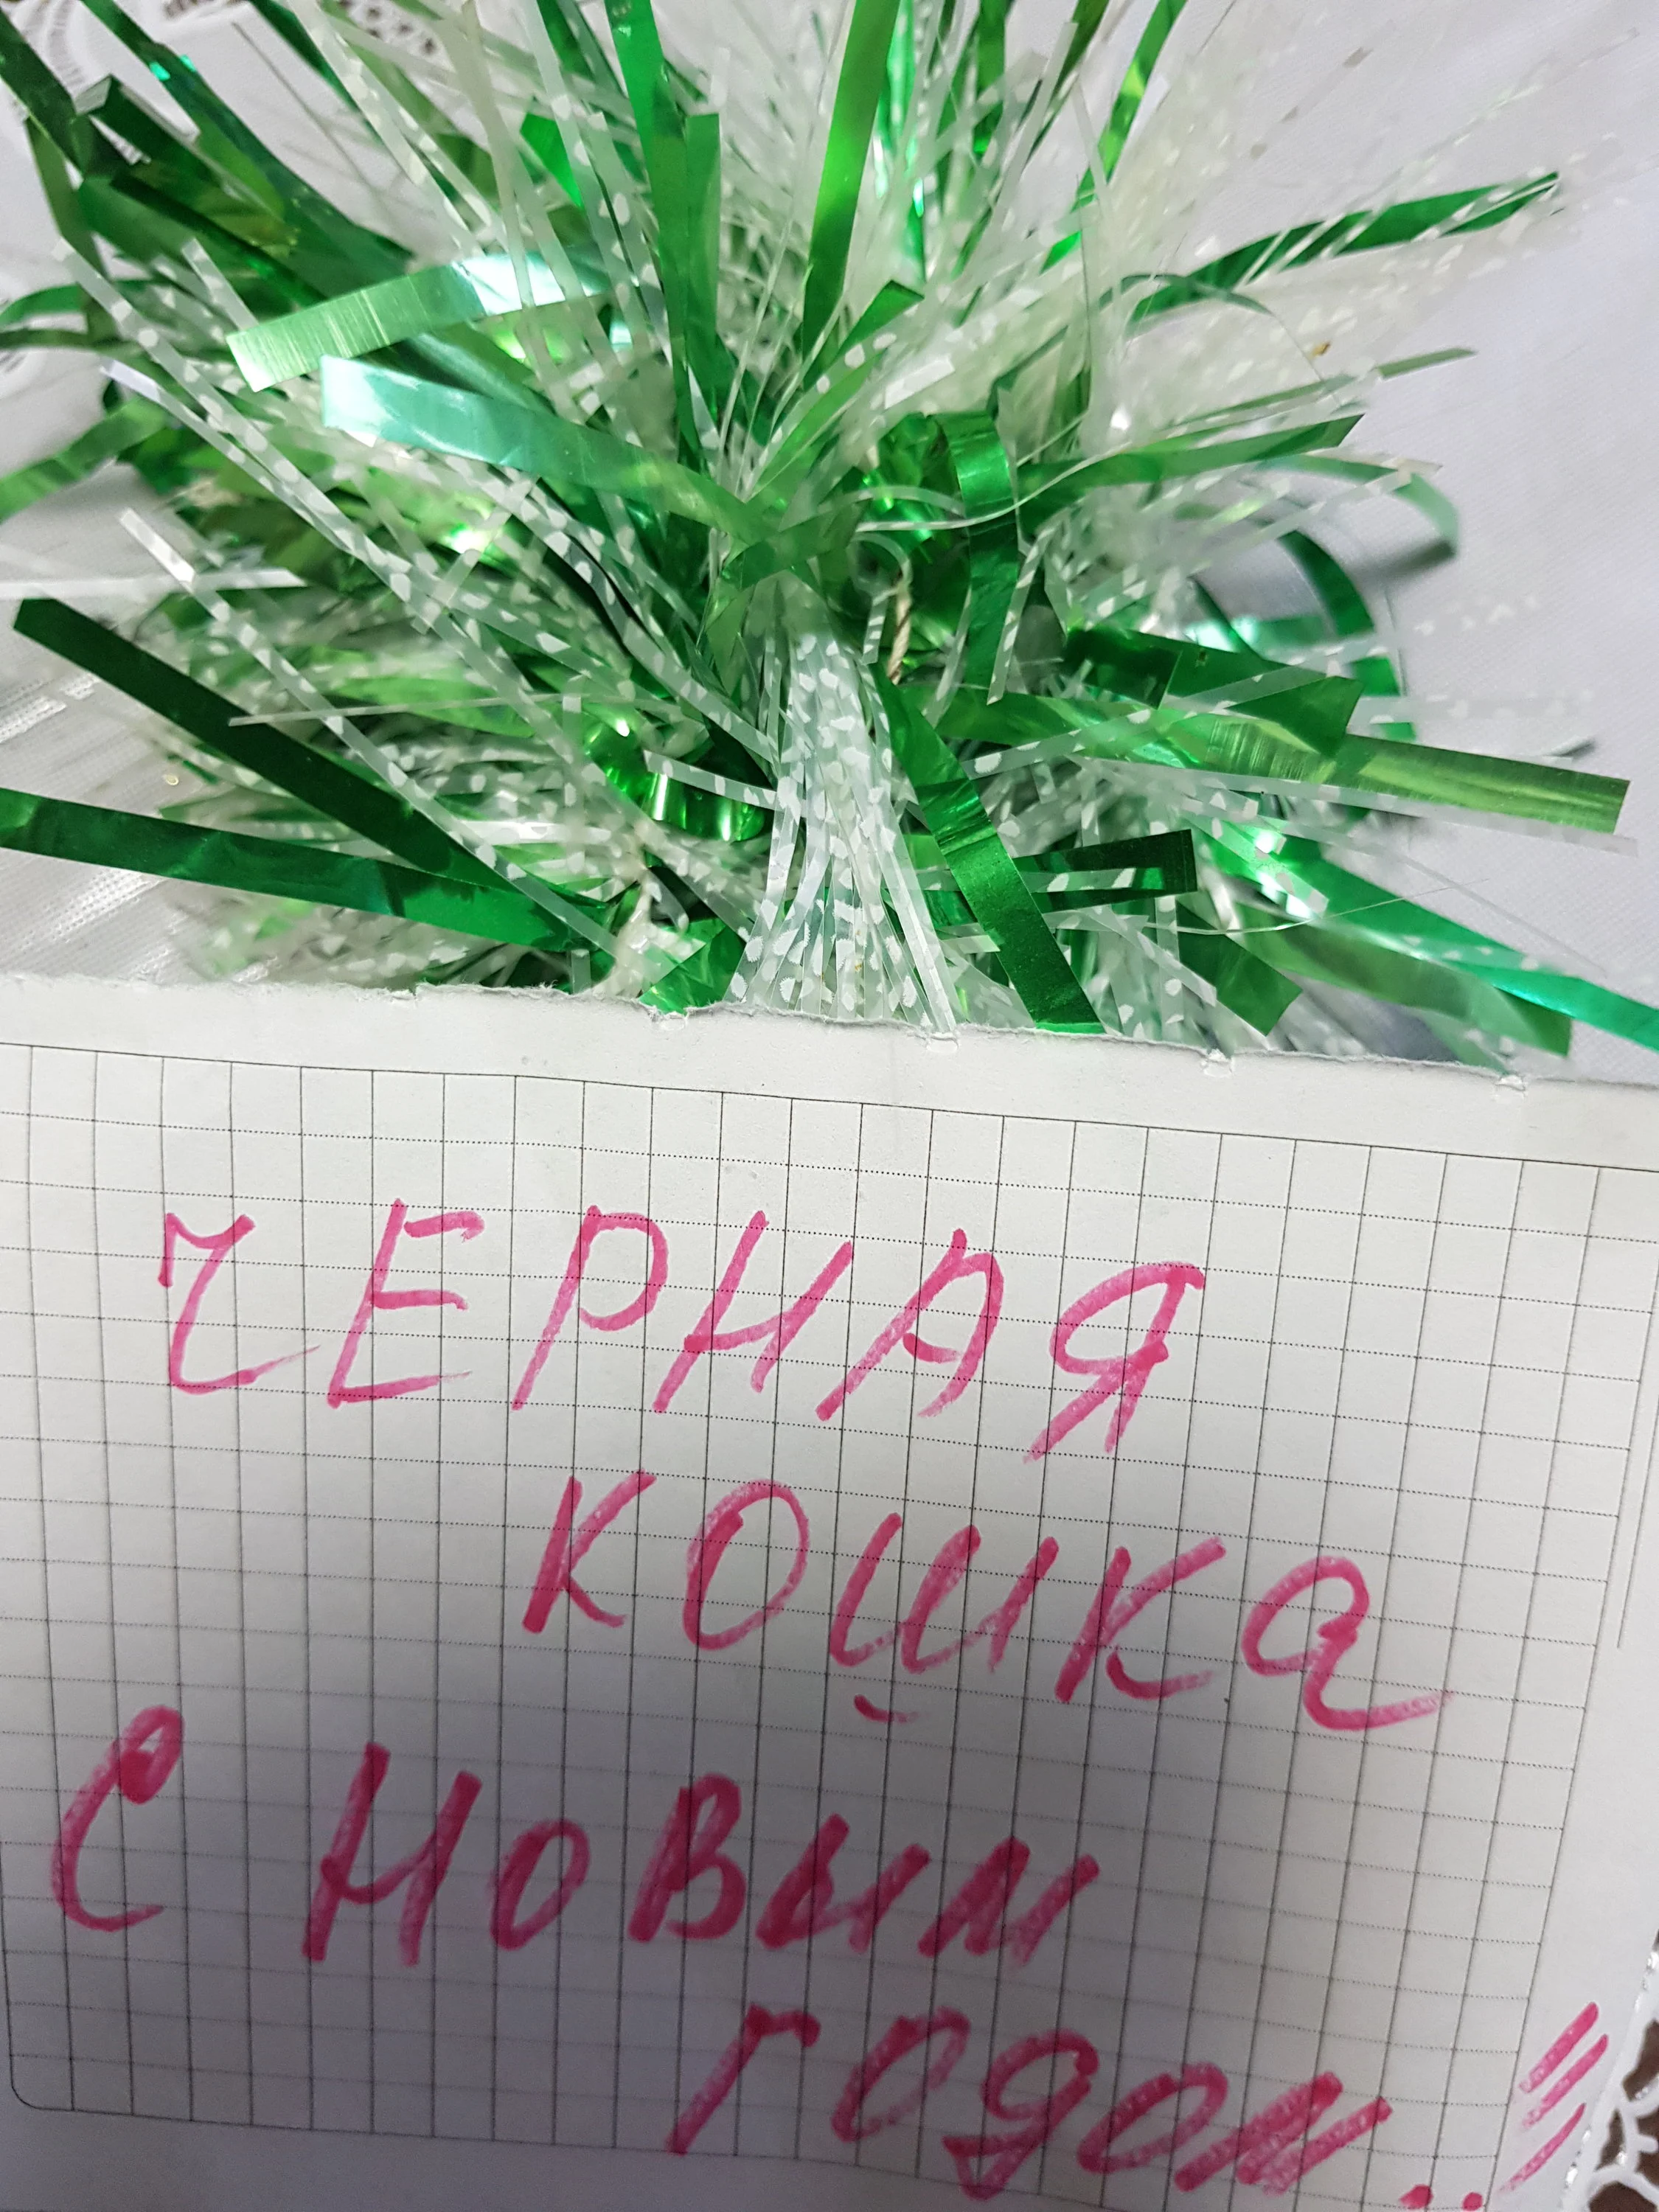 ЧЕРНАЯ
КОШКА
С НОВЫМ
ГОДОМ..!!!